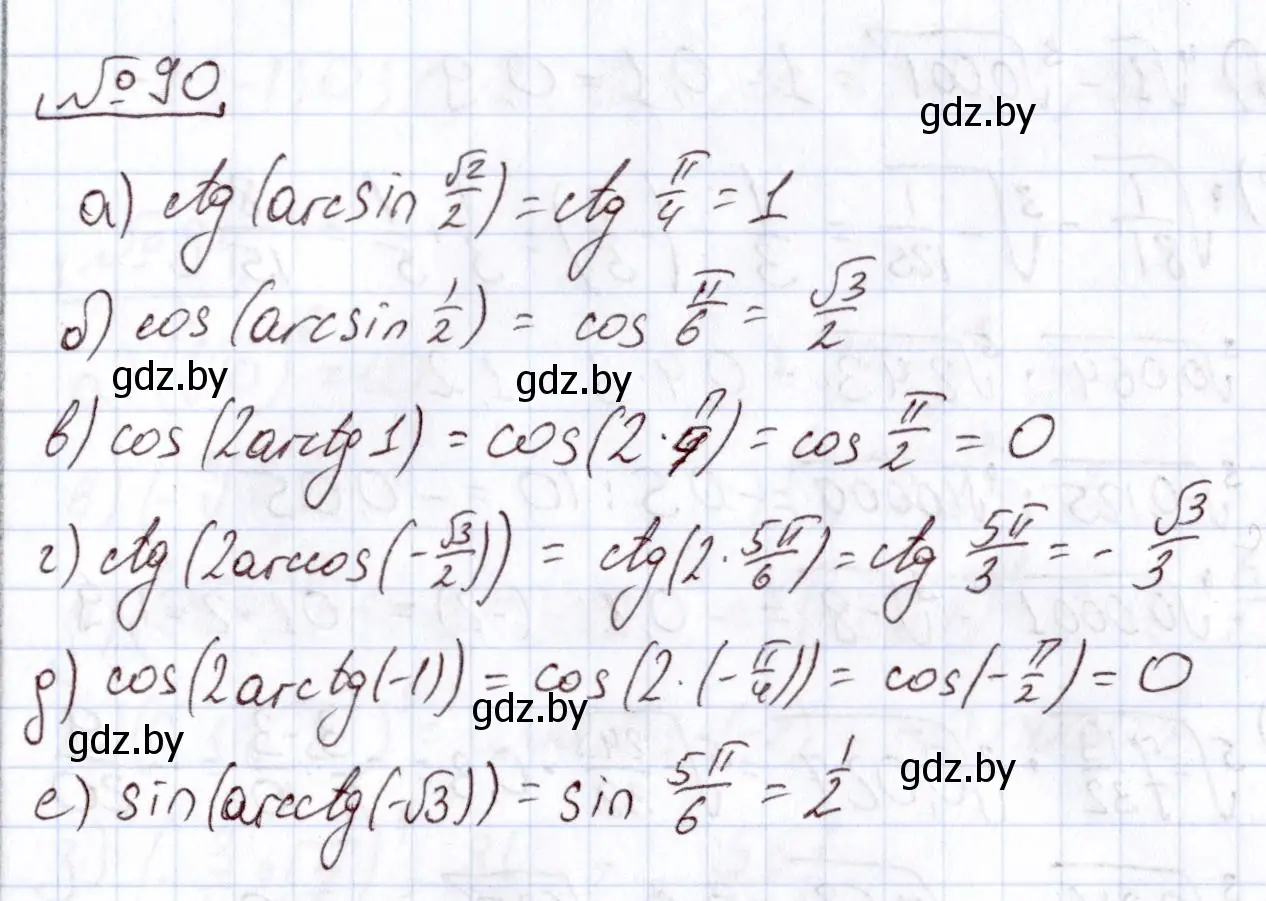 №90
gdz.by
а) ctg(arcsin √2/2) = ctg π/4 = 1
б) cos(arcsin 1/2) = cos π/6 = √3/2
gdz.by gdz.by
в) cos(2arctg 1) = cos(2·π/4) = cos π/2 = 0
г) ctg(2arccos(-√3/2)) = ctg(2·5π/6) = ctg 5π/3 = -√3/3
д) cos(2arctg(-1)) = cos(2·(-π/4)) = cos(-π/2) = 0
gdz.by gdz.by
gdz.by
е) sin(arcctg(-√3)) = sin 5π/6 = 1/2